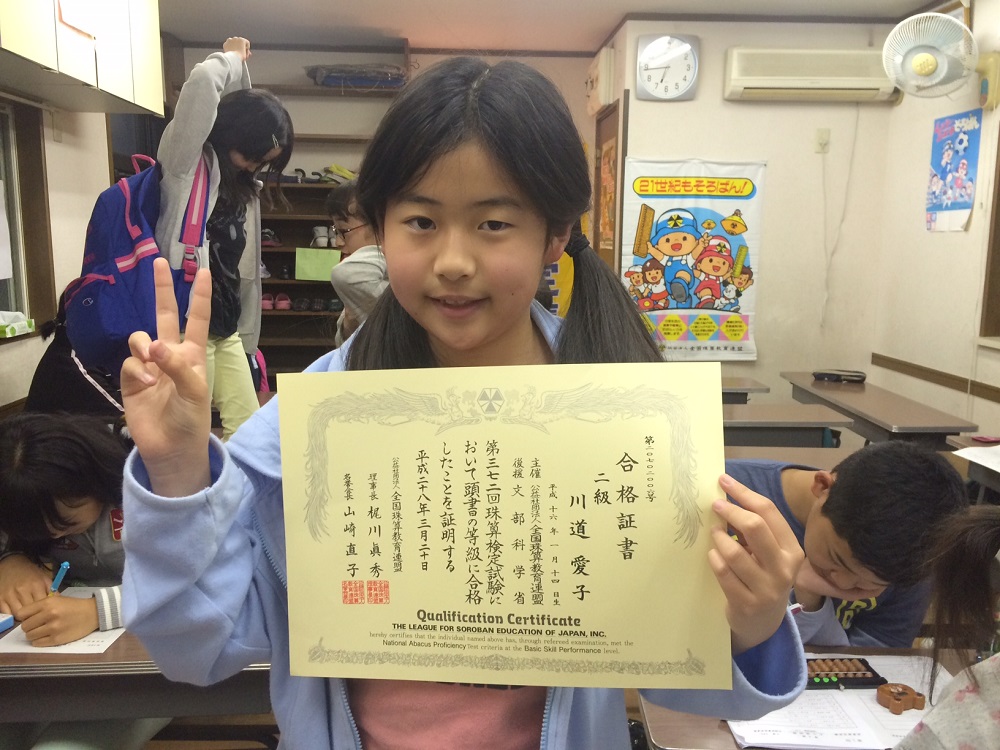 21世紀もそろばん!
第二〇七〇二〇〇号
合格証書
二級
川道愛子
平成十六年一月十四日生
主催 公益社団法人全国珠算教育連盟
後援 文部科学省
第三七二回珠算検定試験に
おいて頭書の等級に合格
したことを証明する
平成二十八年三月二十日
公益社団法人全国珠算教育連盟
理事長 梶川眞秀
名誉会長 山崎直子
Qualification Certificate
THE LEAGUE FOR SOROBAN EDUCATION OF JAPAN, INC.
hereby certifies that the individual named above has, through refereed examination, met the
National Abacus Proficiency Test criteria at the Basic Skill Performance level.